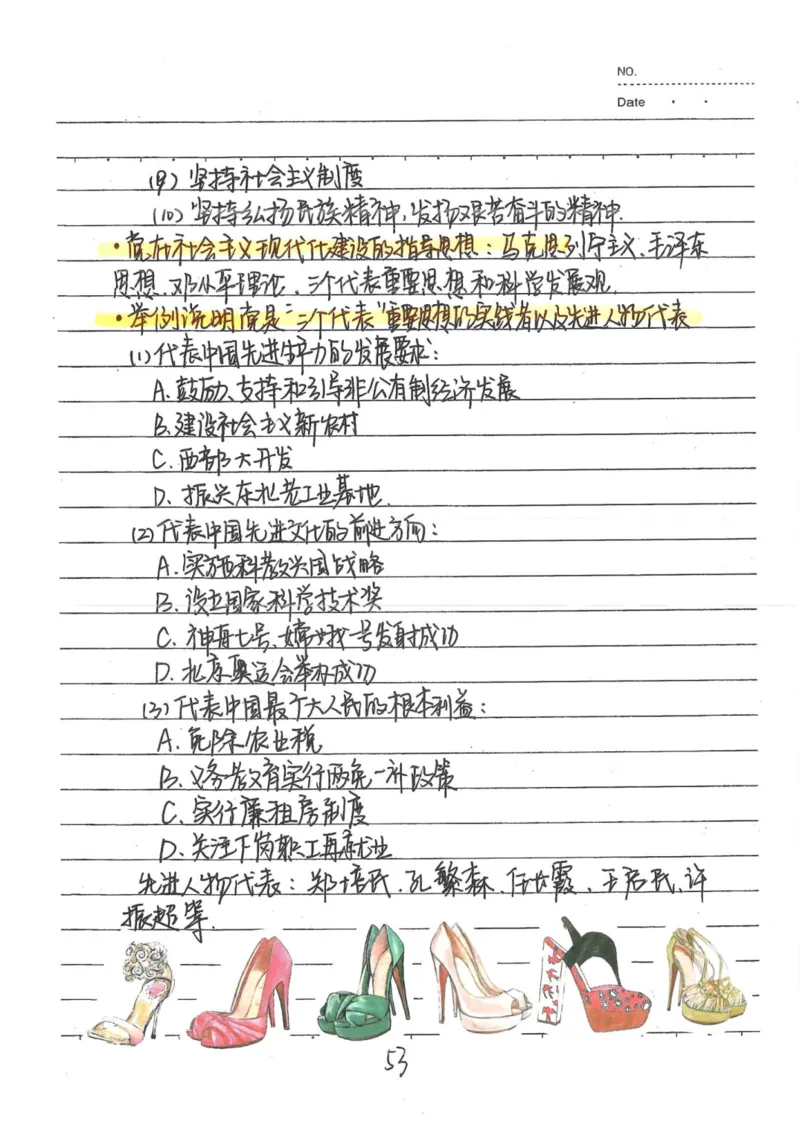 NO.
Date
(9) 坚持社会主义制度
(10) 坚持弘扬民族精神,发扬艰苦奋斗的精神.
·党在社会主义现代化建设的指导思想:马克思列宁主义、毛泽东
思想、邓小平理论、三个代表重要思想和科学发展观.
·举例说明党是“三个代表”重要思想的实践者以及先进人物代表
(1)代表中国先进生产力的发展要求:
A.鼓励、支持和引导非公有制经济发展
B.建设社会主义新农村
C.西部大开发
D.振兴东北老工业基地.
(2)代表中国先进文化的前进方向:
A.实施科教兴国战略
B.设立国家科学技术奖
C.神舟七号、嫦娥一号发射成功
D.北京奥运会举办成功
(3)代表中国最广大人民的根本利益:
A.免除农业税
B.义务教育实行两免一补政策
C.实行廉租房制度
D.关注下岗职工再就业
先进人物代表:郑培民、孔繁森、任长霞、王启民、许
振超等.
53